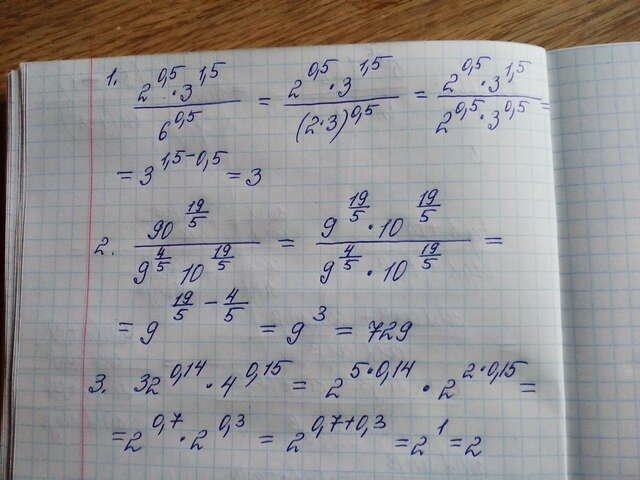 1. 2^0,5 · 3^1,5 / 6^0,5 = 2^0,5 · 3^1,5 / (2·3)^0,5 = 2^0,5 · 3^1,5 / 2^0,5 · 3^0,5 =
= 3^1,5-0,5 = 3
2. 90^19/5 / 9^4/5 10^19/5 = 9^19/5 · 10^19/5 / 9^4/5 · 10^19/5 =
= 9^19/5 - 4/5 = 9^3 = 729
3. 32^0,14 · 4^0,15 = 2^5·0,14 · 2^2·0,15 =
= 2^0,7 · 2^0,3 = 2^0,7+0,3 = 2^1 = 2